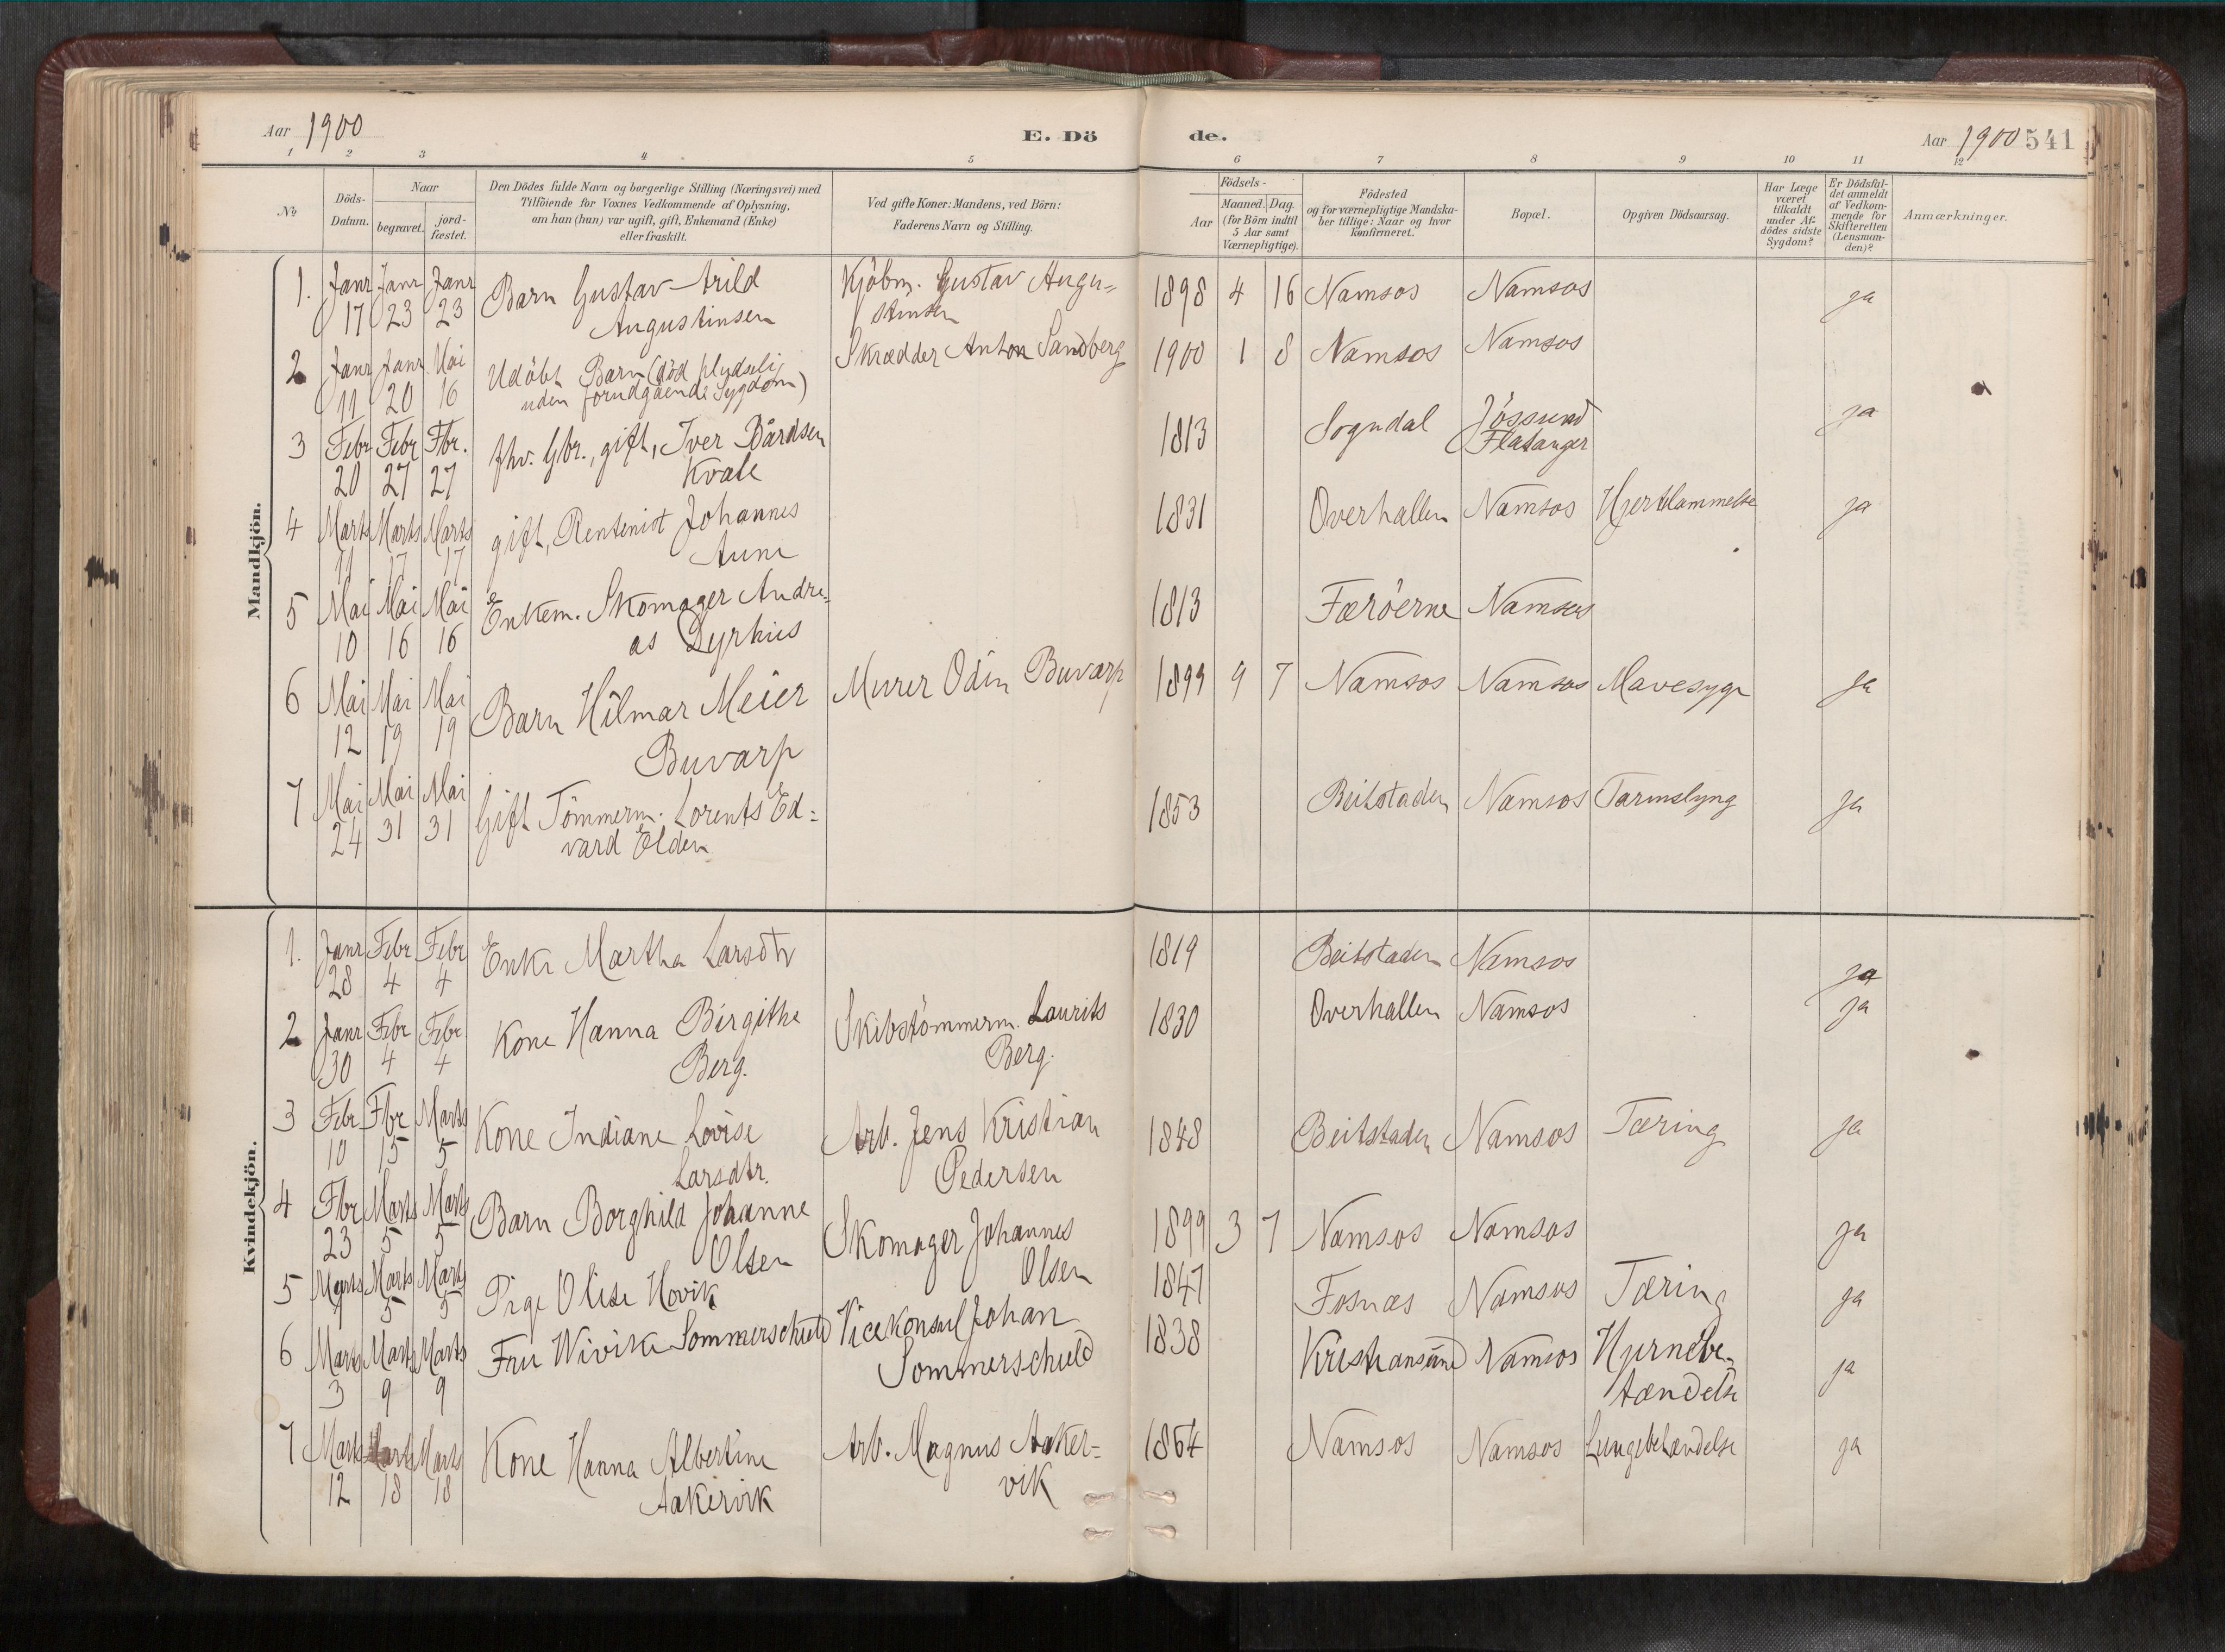 Aar 1900
E. Dö
de.
Aar 1900 541
1 2 3 4 5 6 7 8 9 10 11 12
№
Döds-
Datum.
Naar
begravet.
jord-
fæstet.
Den Dödes fulde Navn og borgerlige Stilling (Næringsvei) med
Tilföiende for Voxnes Vedkommende af Oplysning,
om han (hun) var ugift, gift, Enkemand (Enke)
eller fraskilt.
Ved gifte Koner: Mandens, ved Börn:
Faderens Navn og Stilling.
Födsels-
Aar
Maaned. Dag.
(for Börn indtil
5 Aar samt
Værnepligtige).
Födested
og for værnepligtige Mandska-
ber tillige: Naar og hvor
Konfirmeret.
Bopæl.
Opgiven Dödsaarsag.
Har Læge
været
tilkaldt
under Af-
dödes sidste
Sygdom?
Er Dödsfal-
det anmeldt
af Vedkom-
mende for
Skifteretten
(Lensman-
den)?
Anmærkninger.
Mandkjön.
1. Janr Janr Janr Barn Gustav Arild Kjöbm. Gustav Augu= 1898 4 16 Namsos Namsos ja
17 23 23 Augustinsen stinsen
2 Janr Janr Mai Udöbt Barn (död pludseli Skrædder Anton Sandberg 1900 1 8 Namsos Namsos
11 20 16 uden forudgaaende Sygdom)
3 Febr Febr Fbr. fhv. Gbr., gift, Iver Bårdsen 1813 Sogndal Jössund ja
20 27 27 Kvale Flatanger
4 Marts Marts Marts gift, Rentenist Johannes 1831 Overhallen Namsos Hjertelammelse ja
11 17 17 Aune
5 Mai Mai Mai Enkem. Skomager Andre= 1813 Færöerne Namsos
10 16 16 as Dyrhus
6 Mai Mai Mai Barn Hilmar Meier Murer Odin Buvarp 1899 9 7 Namsos Namsos Mavesyge ja
12 19 19 Buvarp
7 Mai Mai Mai Gift Tömmerm. Lorents Ed= 1853 Beitstaden Namsos Tarmslyng ja
24 31 31 vard Elden
Kvindekjön.
1. Janr Febr Febr Enke Martha Larsdtr 1819 Beitstaden Namsos ja
28 4 4
2 Janr Febr Febr Kone Hanna Birgithe Skibstömmerm. Laurits 1830 Overhallen Namsos ja
30 4 4 Berg. Berg.
3 Febr Fbr Marts Kone Indiane Lovise Arb. Jens Kristian 1848 Beitstaden Namsos Tæring ja
10 15 5 Larsdtr. Pedersen
4 Fbr Marts Marts Barn Borghild Johanne Skomager Johannes 1899 3 7 Namsos Namsos ja
23 5 5 Olsen Olsen
5 Marts Marts Marts Pige Olise Hovik 1847 Fosnæs Namsos Tæring ja
1 5 5
6 Marts Marts Marts Fru Wivike Sommerschield Vicekonsul Johan 1838 Kristiansund Namsos Hjernebe= ja
3 9 9 Sommerschield tændelse
7 Marts Marts Marts Kone Hanna Albertine Arb. Magnus Aaker= 1864 Namsos Namsos Lungebetændelse ja
12 18 18 Aakervik vik